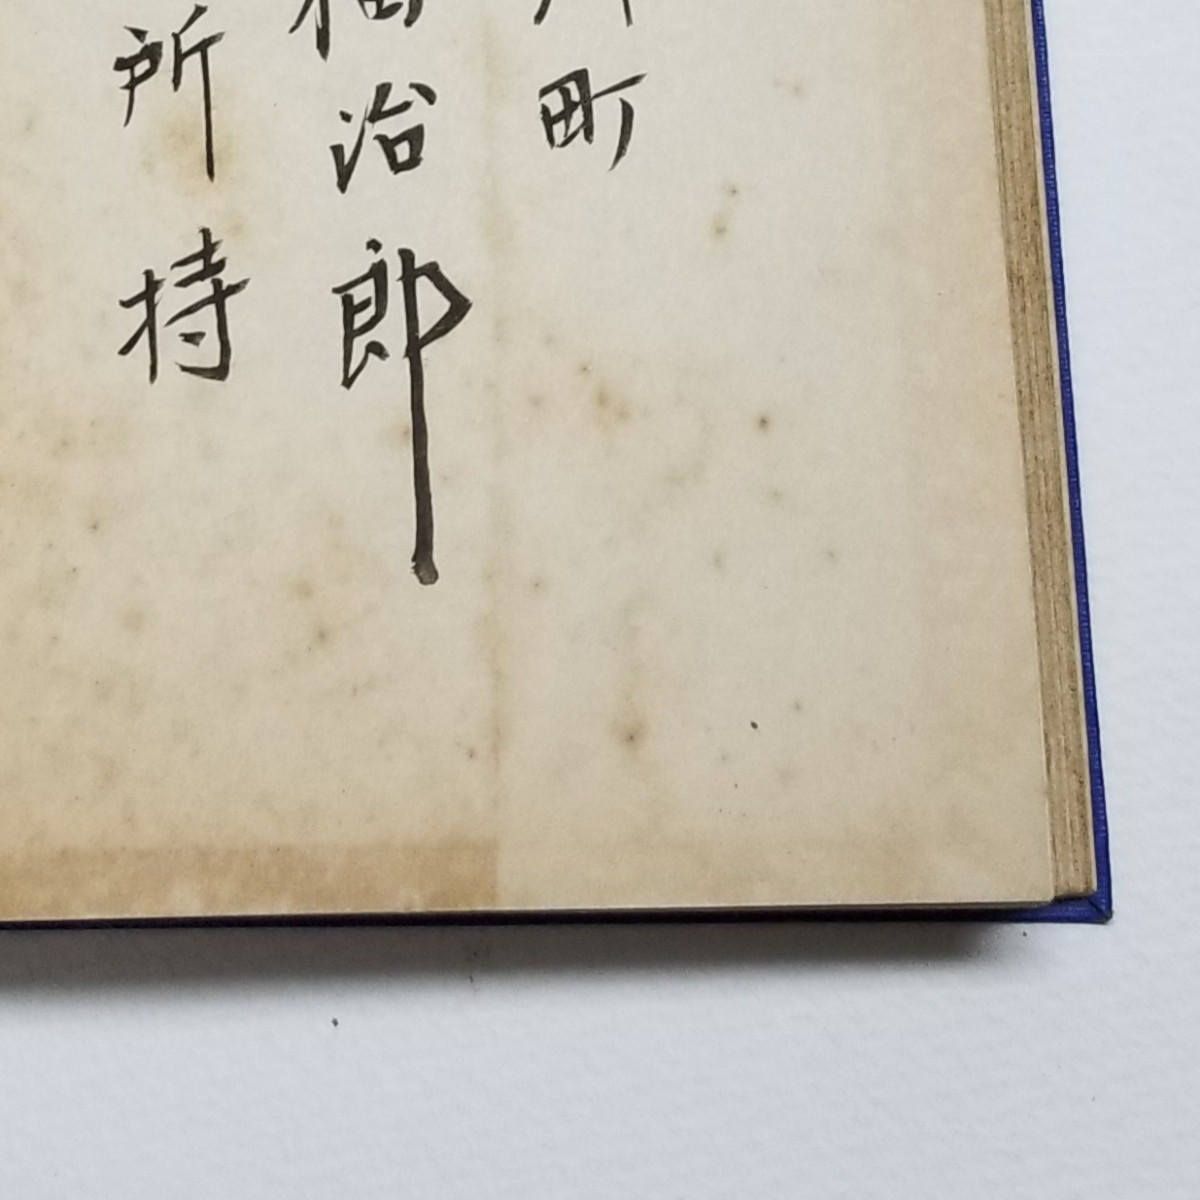 町
治郎
所持